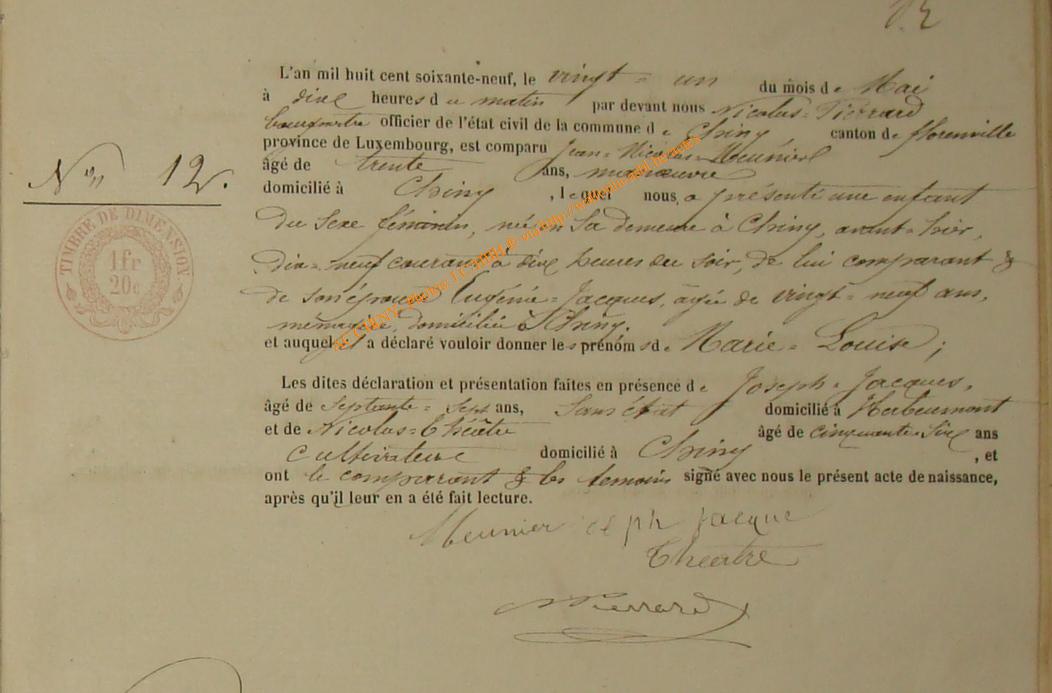 N° 12.
TIMBRE DE DIMENSION
1fr
20c
L'an mil huit cent soixante-neuf, le vingt-un du mois de Mai
à dix heures du matin par devant nous Nicolas-Pierrard
bourgmestre officier de l'état civil de la commune de Chiny, canton de florenville
province de Luxembourg, est comparu Jean-Nicolas-Meunier
âgé de trente ans, manoeuvre
domicilié à Chiny, lequel nous a présenté une enfant
du sexe féminin, née en sa demeure à Chiny, avant-hier,
dix-neuf courant à dix heures du soir, de lui comparant &
de son épouse Eugénie-Jacques, agée de vingt-neuf ans,
ménagère, domiciliée à Chiny.
et auquel il a déclaré vouloir donner les prénoms de Marie-Louise;
Les dites déclaration et présentation faites en présence de Joseph-Jacques,
âgé de septante-sept ans, sans état domicilié à Herbeumont
et de Nicolas-Théâtre âgé de cinquante-six ans
cultivateur domicilié à Chiny, et
ont le comparant & les temoins signé avec nous le présent acte de naissance,
après qu'il leur en a été fait lecture.
Meunier jacque
Theatre
Pierrard